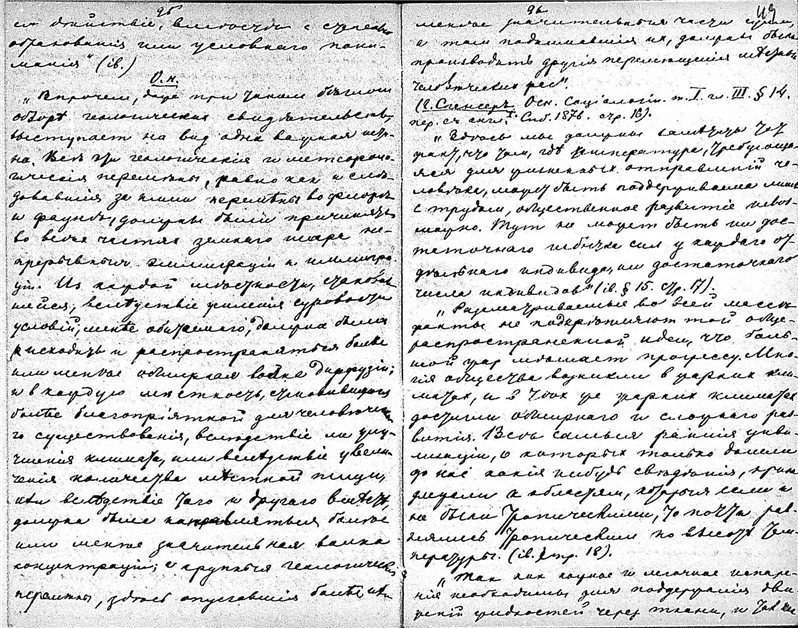 95
образованія или условнаго пони-
манія" (ib.)
О. н.
"Впрочем, даже при таком бѣглом
обзорѣ геологических свидѣтельств,
выступает на вид одна важная исти-
на. Всѣ эти геологическія и метеороло-
гическія перемѣны, равно как и слѣ-
довавшія за ними перемѣны во флорѣ
и фаунѣ, должны были причинять
во всѣх частях земнаго шара не-
прерывныя эмиграціи и иммигра-
ціи. Из каждой мѣстности, становив-
шейся, вслѣдствіе усиленія суровости
условій, менѣе обитаемой, должна была
исходить и распространяться болѣе
или менѣе обширная волна диффузіи;
и в каждую мѣстность, становившуюся
болѣе благопріятной для человѣческа-
го существованія, вслѣдствіе ли улуч-
шенія климата, или вслѣдствіе увели-
ченія количества мѣстной пищи,
или вслѣдствіе того и другаго вмѣстѣ,
должна была направляться болѣе
или менѣе значительная волна
концентраціи; и крупныя геологическія
перемѣны, здѣсь опускавшія болѣе или
96
менѣе значительныя части суши,
а там поднимавшія их, должны были
производить другія перемѣщенія
человѣческих рас".
(Г. Спенсеръ. Осн. Соціологіи. т. I. гл. III. § 14.
пер. съ англ. Спб. 1876. стр. 16).
"Здѣсь мы должны замѣтить тот
факт, что там, гдѣ температура, требующа-
яся для жизненных отправленій че-
ловѣка, может быть поддерживаема лишь
с трудом, общественное развитіе невоз-
можно. Тут не может быть ни дос-
таточнаго избытка сил у каждаго от-
дѣльнаго индивида, ни достаточнаго
числа индивидов" (ib. § 15. стр. 17).
"Разсматриваемые во всей массѣ
факты не подкрѣпляют той обще-
распространенной идеи, что боль-
шой жар мѣшает прогрессу. Мно-
гія общества возникли в жарких кли-
матах, и в тѣх же жарких климатах
достигли обширнаго и сложнаго раз-
витія. Всѣ самыя раннія циви-
лизаціи, о которых только дошли
до нас какія нибудь свѣдѣнія, прина-
длежали к областям, которыя если и
не были тропическими, то почти рав-
нялись тропическим по высотѣ тем-
пературы. (ib. стр. 18).
"Так как кожное и легочное испаре-
ніе необходимы для поддержанія дви-
женій жидкостей через ткани, и так как